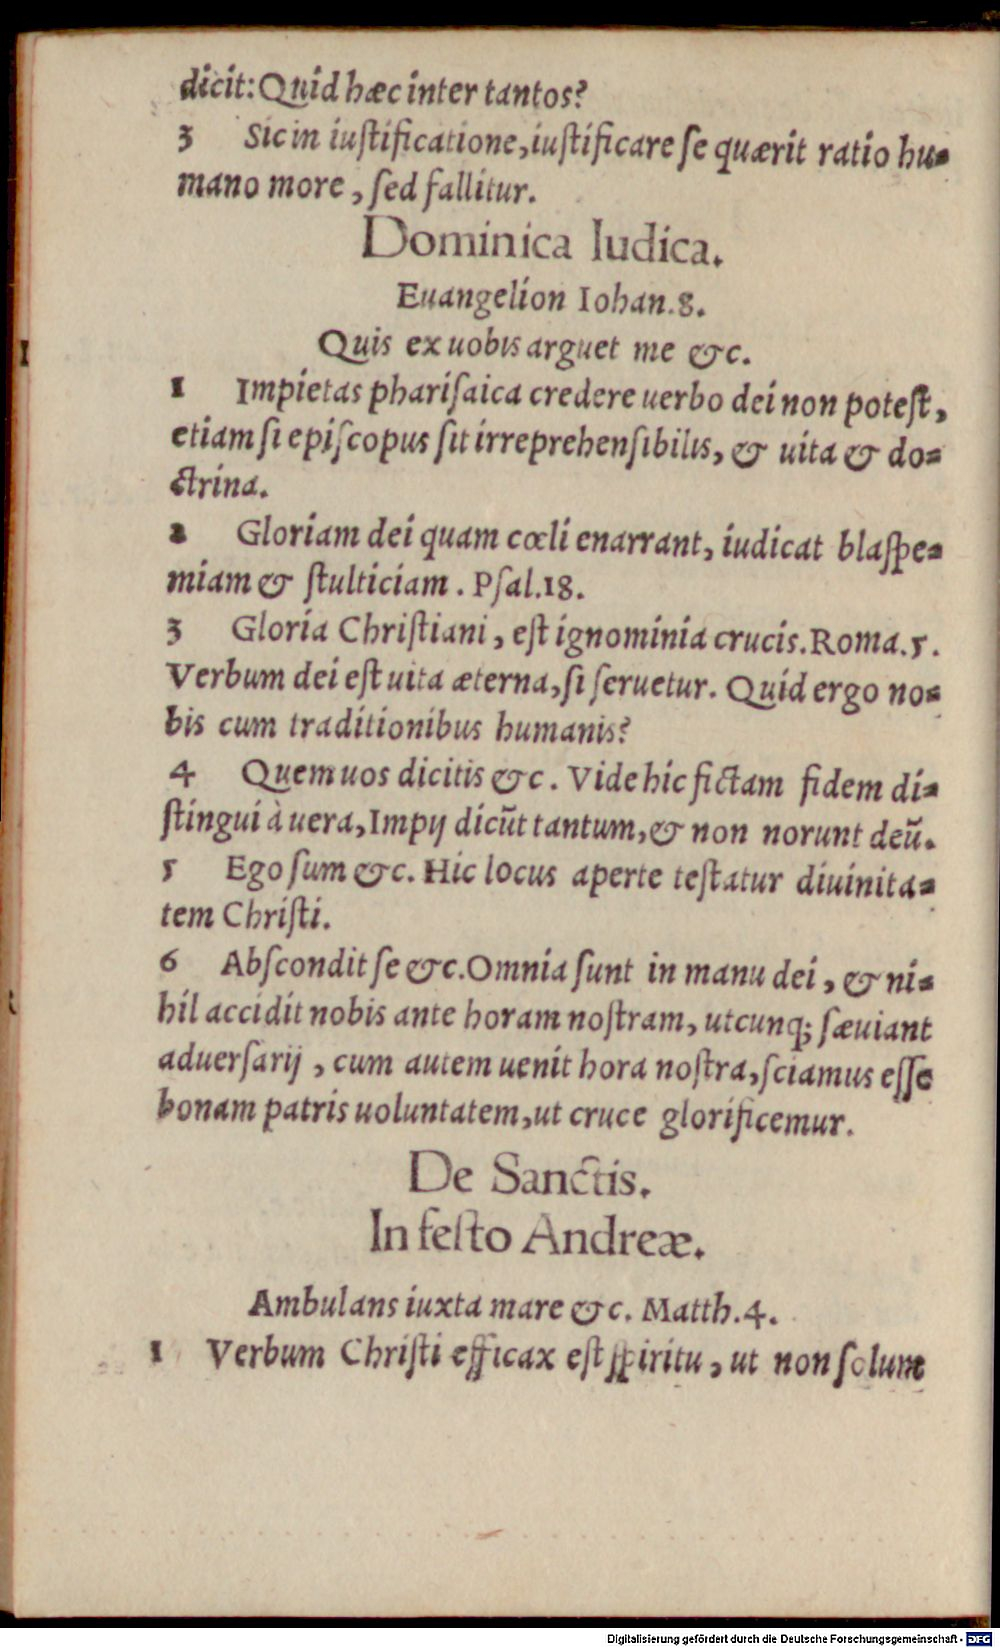 dicit: Quid hæc inter tantos?
3 Sic in iuſtificatione, iuſtificare ſe quærit ratio hu-
mano more, ſed fallitur.
Dominica Iudica.
Euangelion Iohan.8.
Quis ex uobis arguet me &c.
1 Impietas phariſaica credere uerbo dei non poteſt,
etiam ſi epiſcopus ſit irreprehenſibilis, & uita & do-
ctrina.
2 Gloriam dei quam cœli enarrant, iudicat blaſpe-
miam & ſtulticiam. Pſal.18.
3 Gloria Chriſtiani, eſt ignominia crucis. Roma.5.
Verbum dei eſt uita æterna, ſi ſeruetur. Quid ergo no-
bis cum traditionibus humanis?
4 Quem uos dicitis &c. Vide hic fictam fidem di-
ſtingui à uera, Impij dicūt tantum, & non norunt deū.
5 Ego ſum &c. Hic locus aperte teſtatur diuinita-
tem Chriſti.
6 Abſcondit ſe &c. Omnia ſunt in manu dei, & ni-
hil accidit nobis ante horam noſtram, utcunq; ſæuiant
aduerſarij, cum autem uenit hora noſtra, ſciamus eſſe
bonam patris uoluntatem, ut cruce glorificemur.
De Sanctis.
In feſto Andreæ.
Ambulans iuxta mare &c. Matth.4.
1 Verbum Chriſti efficax eſt ſpiritu, ut non ſolum
Digitalisierung gefördert durch die Deutsche Forschungsgemeinschaft - DFG